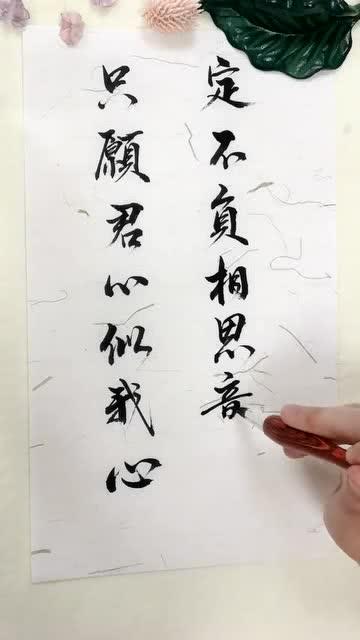 只願君心似我心
定不負相思音